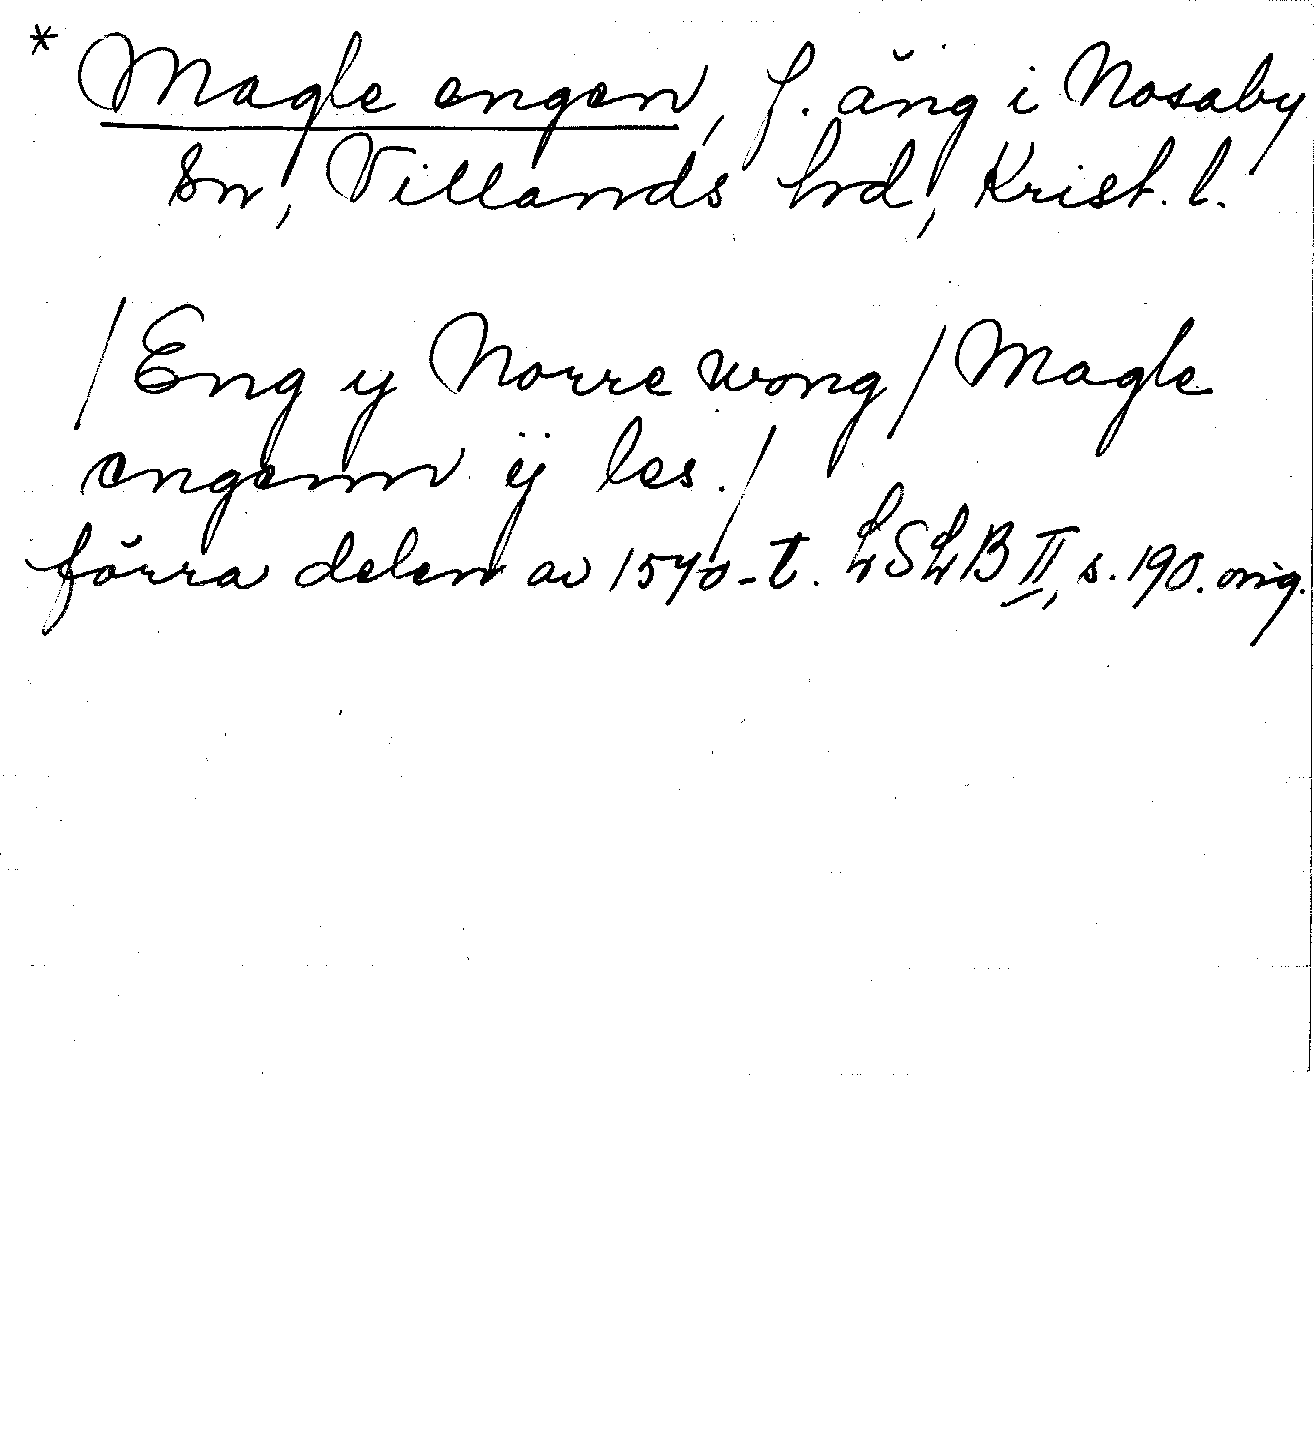 * Magle engen, f. äng i Nosaby
sn, Villands hrd, Krist. l.
/Eng y Norre wong/ Magle
engenn ÿ les./
förra delen av 1570-t. LSLB II, s. 190. orig.